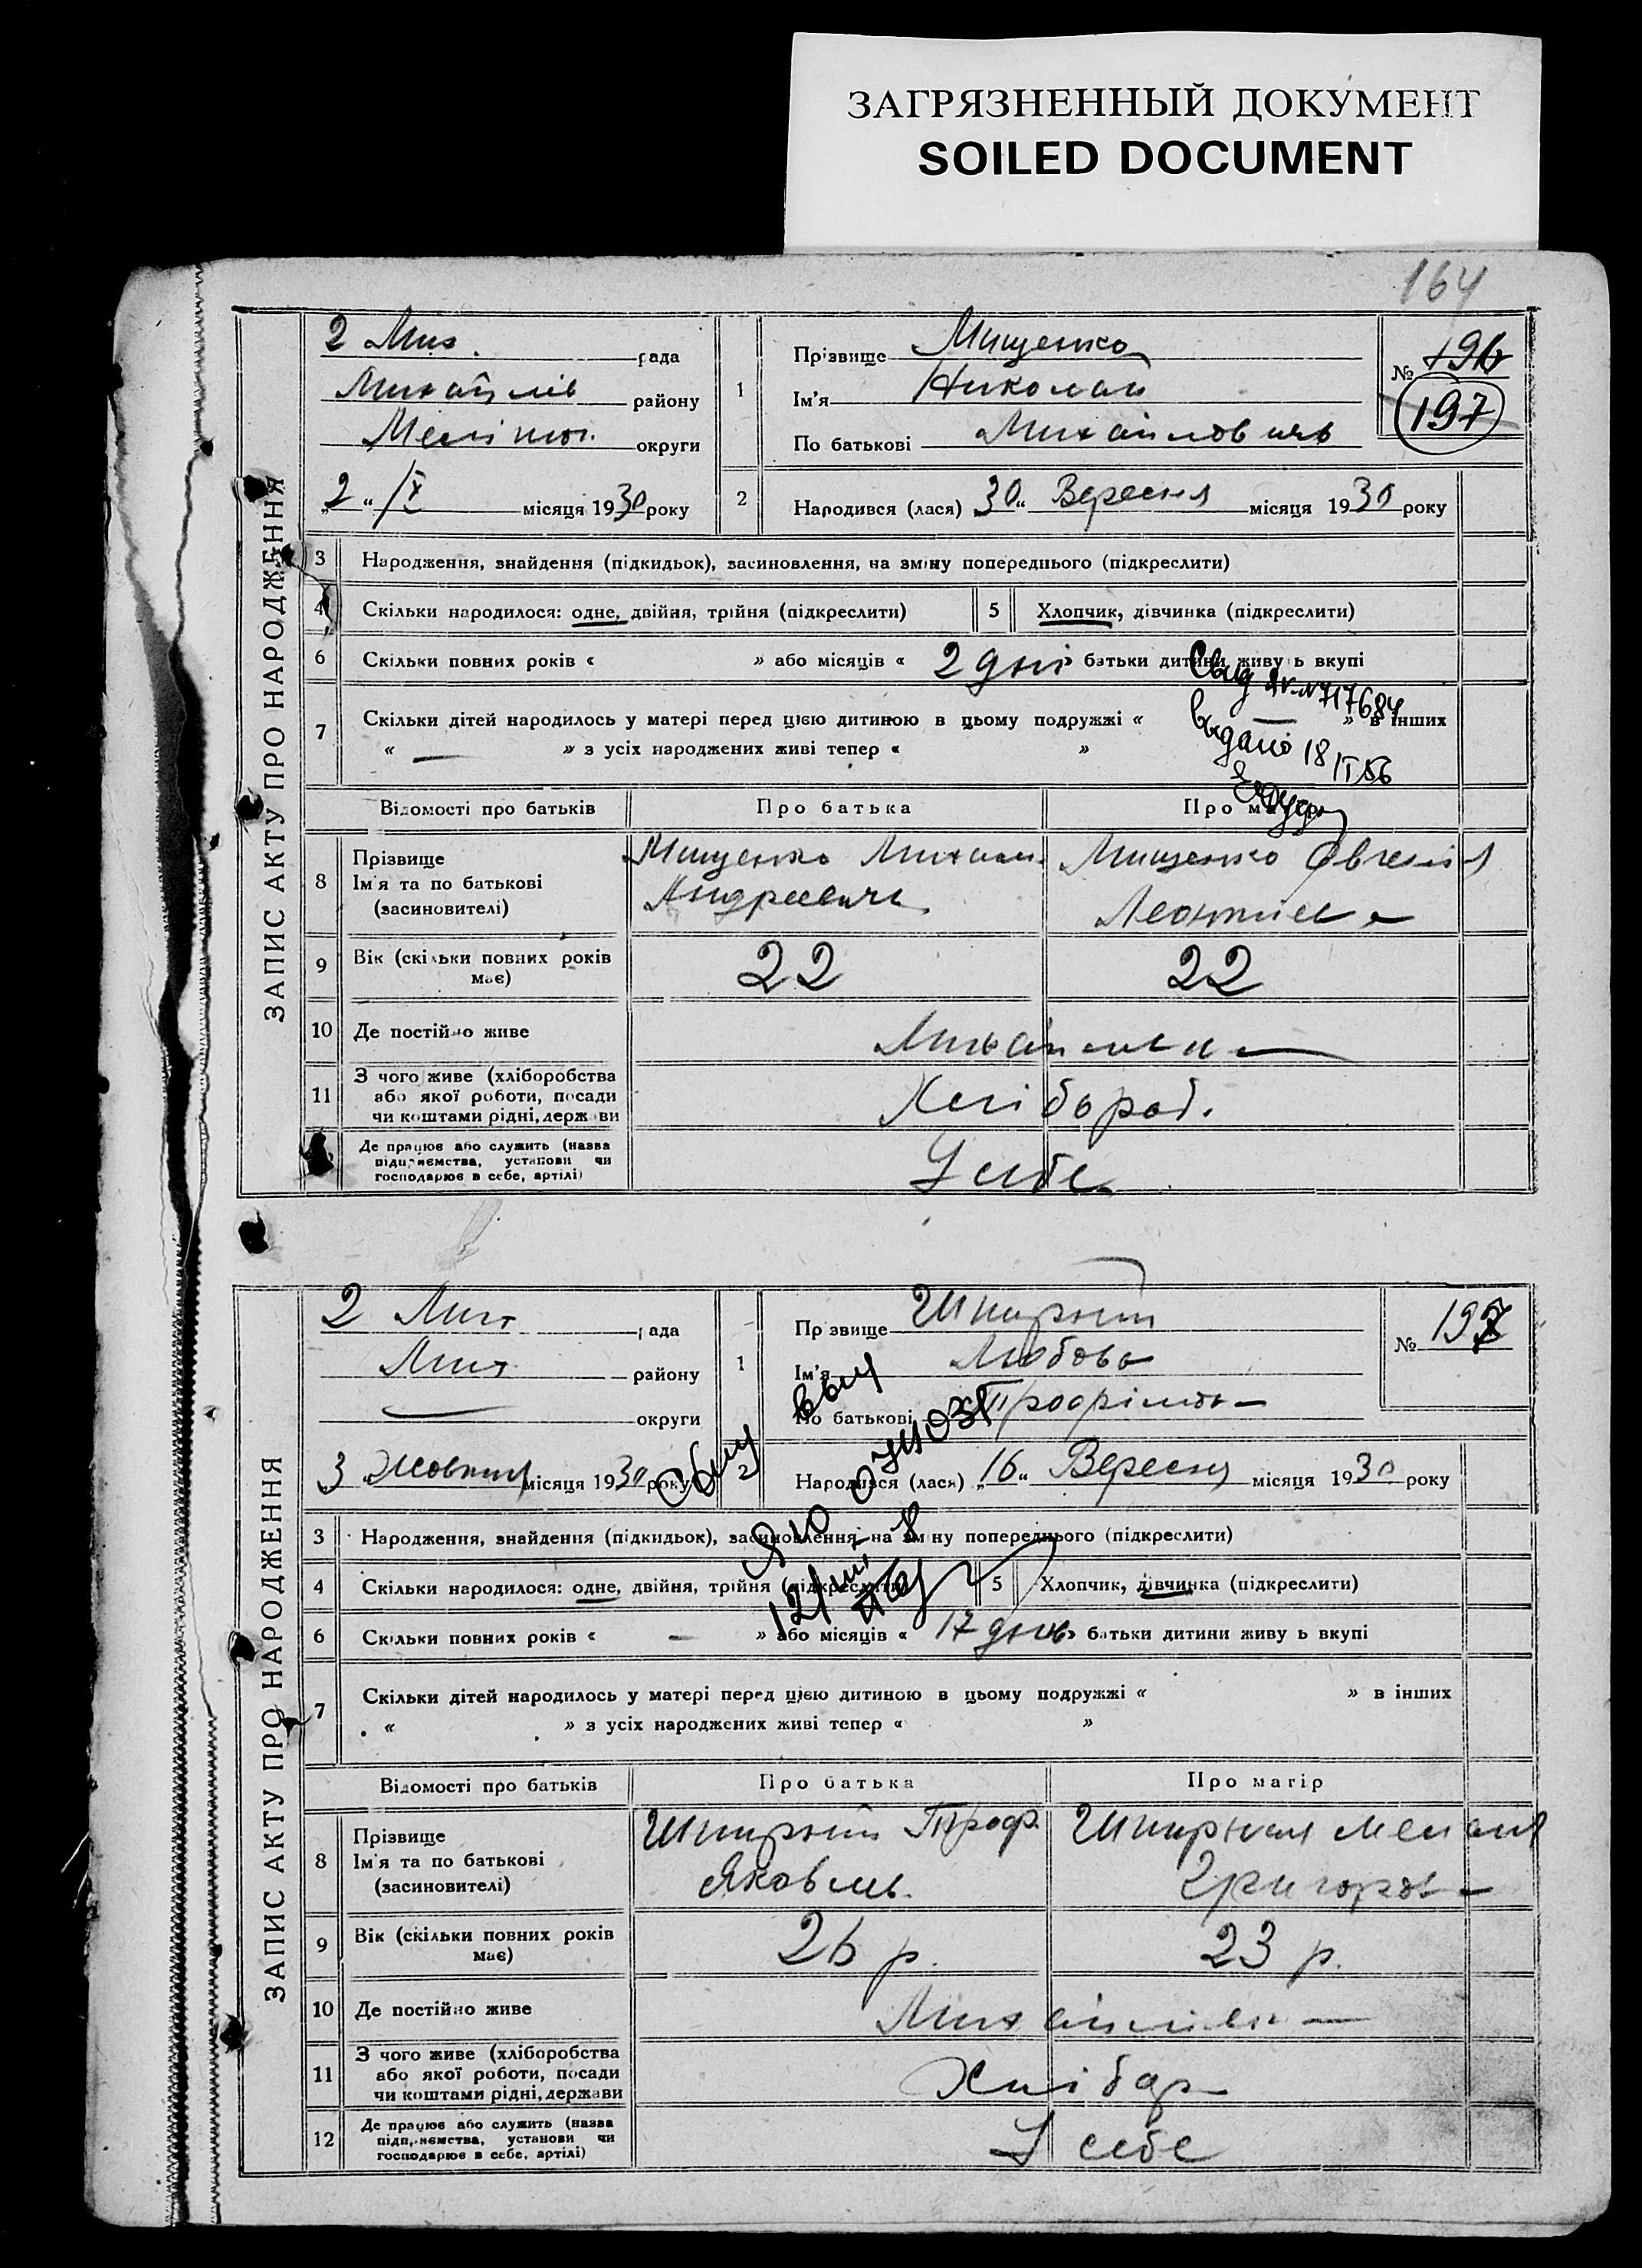 ЗАГРЯЗНЕННЫЙ ДОКУМЕНТ
SOILED DOCUMENT
164
ЗАПИС АКТУ ПРО НАРОДЖЕННЯ
2 Мих. рада
Михайлів району
Меліпт. округи
„2“ /X місяця 1930 року
1
Прізвище Мищенко
Ім'я Николай
По батькові Михайлович
№ 196
197
2 Народився (лася) 30“ Вересня місяця 1930 року
3 Народження, знайдення (підкидьок), засиновлення, на зміну попереднього (підкреслити)
4 Скільки народилося: одне, двійня, трійня (підкреслити) 5 Хлопчик, дівчинка (підкреслити)
6 Скільки повних років « » або місяців « 2 дні » батьки дитини живуть вкупі
7 Скільки дітей народилось у матері перед цією дитиною в цьому подружжі « — » в інших
« — » з усіх народжених живі тепер « »
717684
18
Відомості про батьків Про батька Про матір
8 Прізвище
Ім'я та по батькові
(засиновителі)
Мищенко Михаил
Андреевич
Мищенко Евгенія
Леонтиев
9 Вік (скільки повних років має) 22 22
10 Де постійно живе Михайлівка
11 З чого живе (хліборобства
або якої роботи, посади
чи коштами рідні, держави
Хлібороб.
Де працює або служить (назва
підприємства, установи чи
господарює в себе, артілі)
У себе
ЗАПИС АКТУ ПРО НАРОДЖЕННЯ
2 Мих рада
Мих району
— округи
„3“ Жовтня місяця 1930 року
1
Прізвище Шпирний
Ім'я Любовь
По батькові Трофімов—
№ 197
2 Народився (лася) „16“ Вересня місяця 1930 року
3 Народження, знайдення (підкидьок), засиновлення, на зміну попереднього (підкреслити)
4 Скільки народилося: одне, двійня, трійня (підкреслити) 5 Хлопчик, дівчинка (підкреслити)
6 Скільки повних років « — » або місяців « 17 днів » батьки дитини живуть вкупі
7 Скільки дітей народилось у матері перед цією дитиною в цьому подружжі « » в інших
« » з усіх народжених живі тепер « »
Відомості про батьків Про батька Про матір
8 Прізвище
Ім'я та по батькові
(засиновителі)
Шпирний Троф.
Яковль.
Шпирная Мелания
Григоров—
9 Вік (скільки повних років має) 26 р. 23 р.
10 Де постійно живе Михайлівк—
11 З чого живе (хліборобства
або якої роботи, посади
чи коштами рідні, держави
Хлібор—
12 Де працює або служить (назва
підприємства, установи чи
господарює в себе, артілі)
У себе